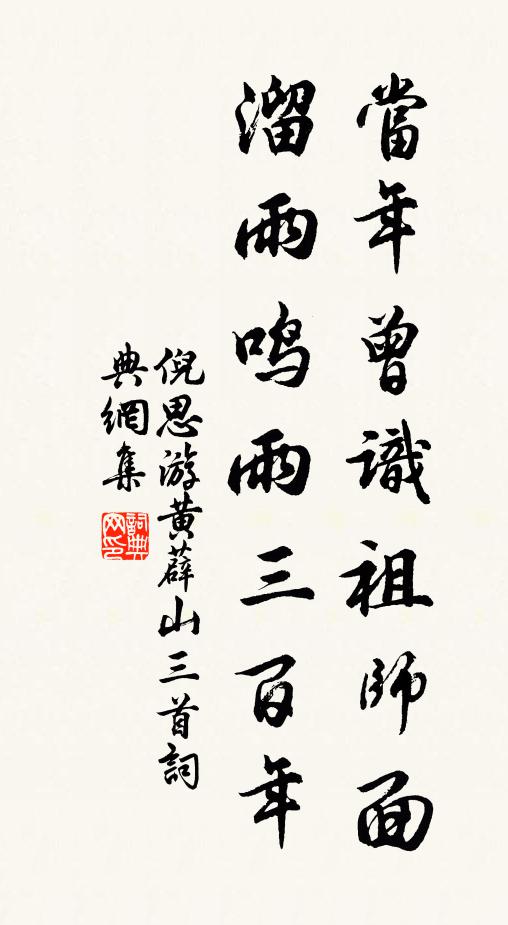 當年曾識祖師面
溜雨鳴雨三百年
倪思游黄薜山三首詞
典網集
詞典
网印